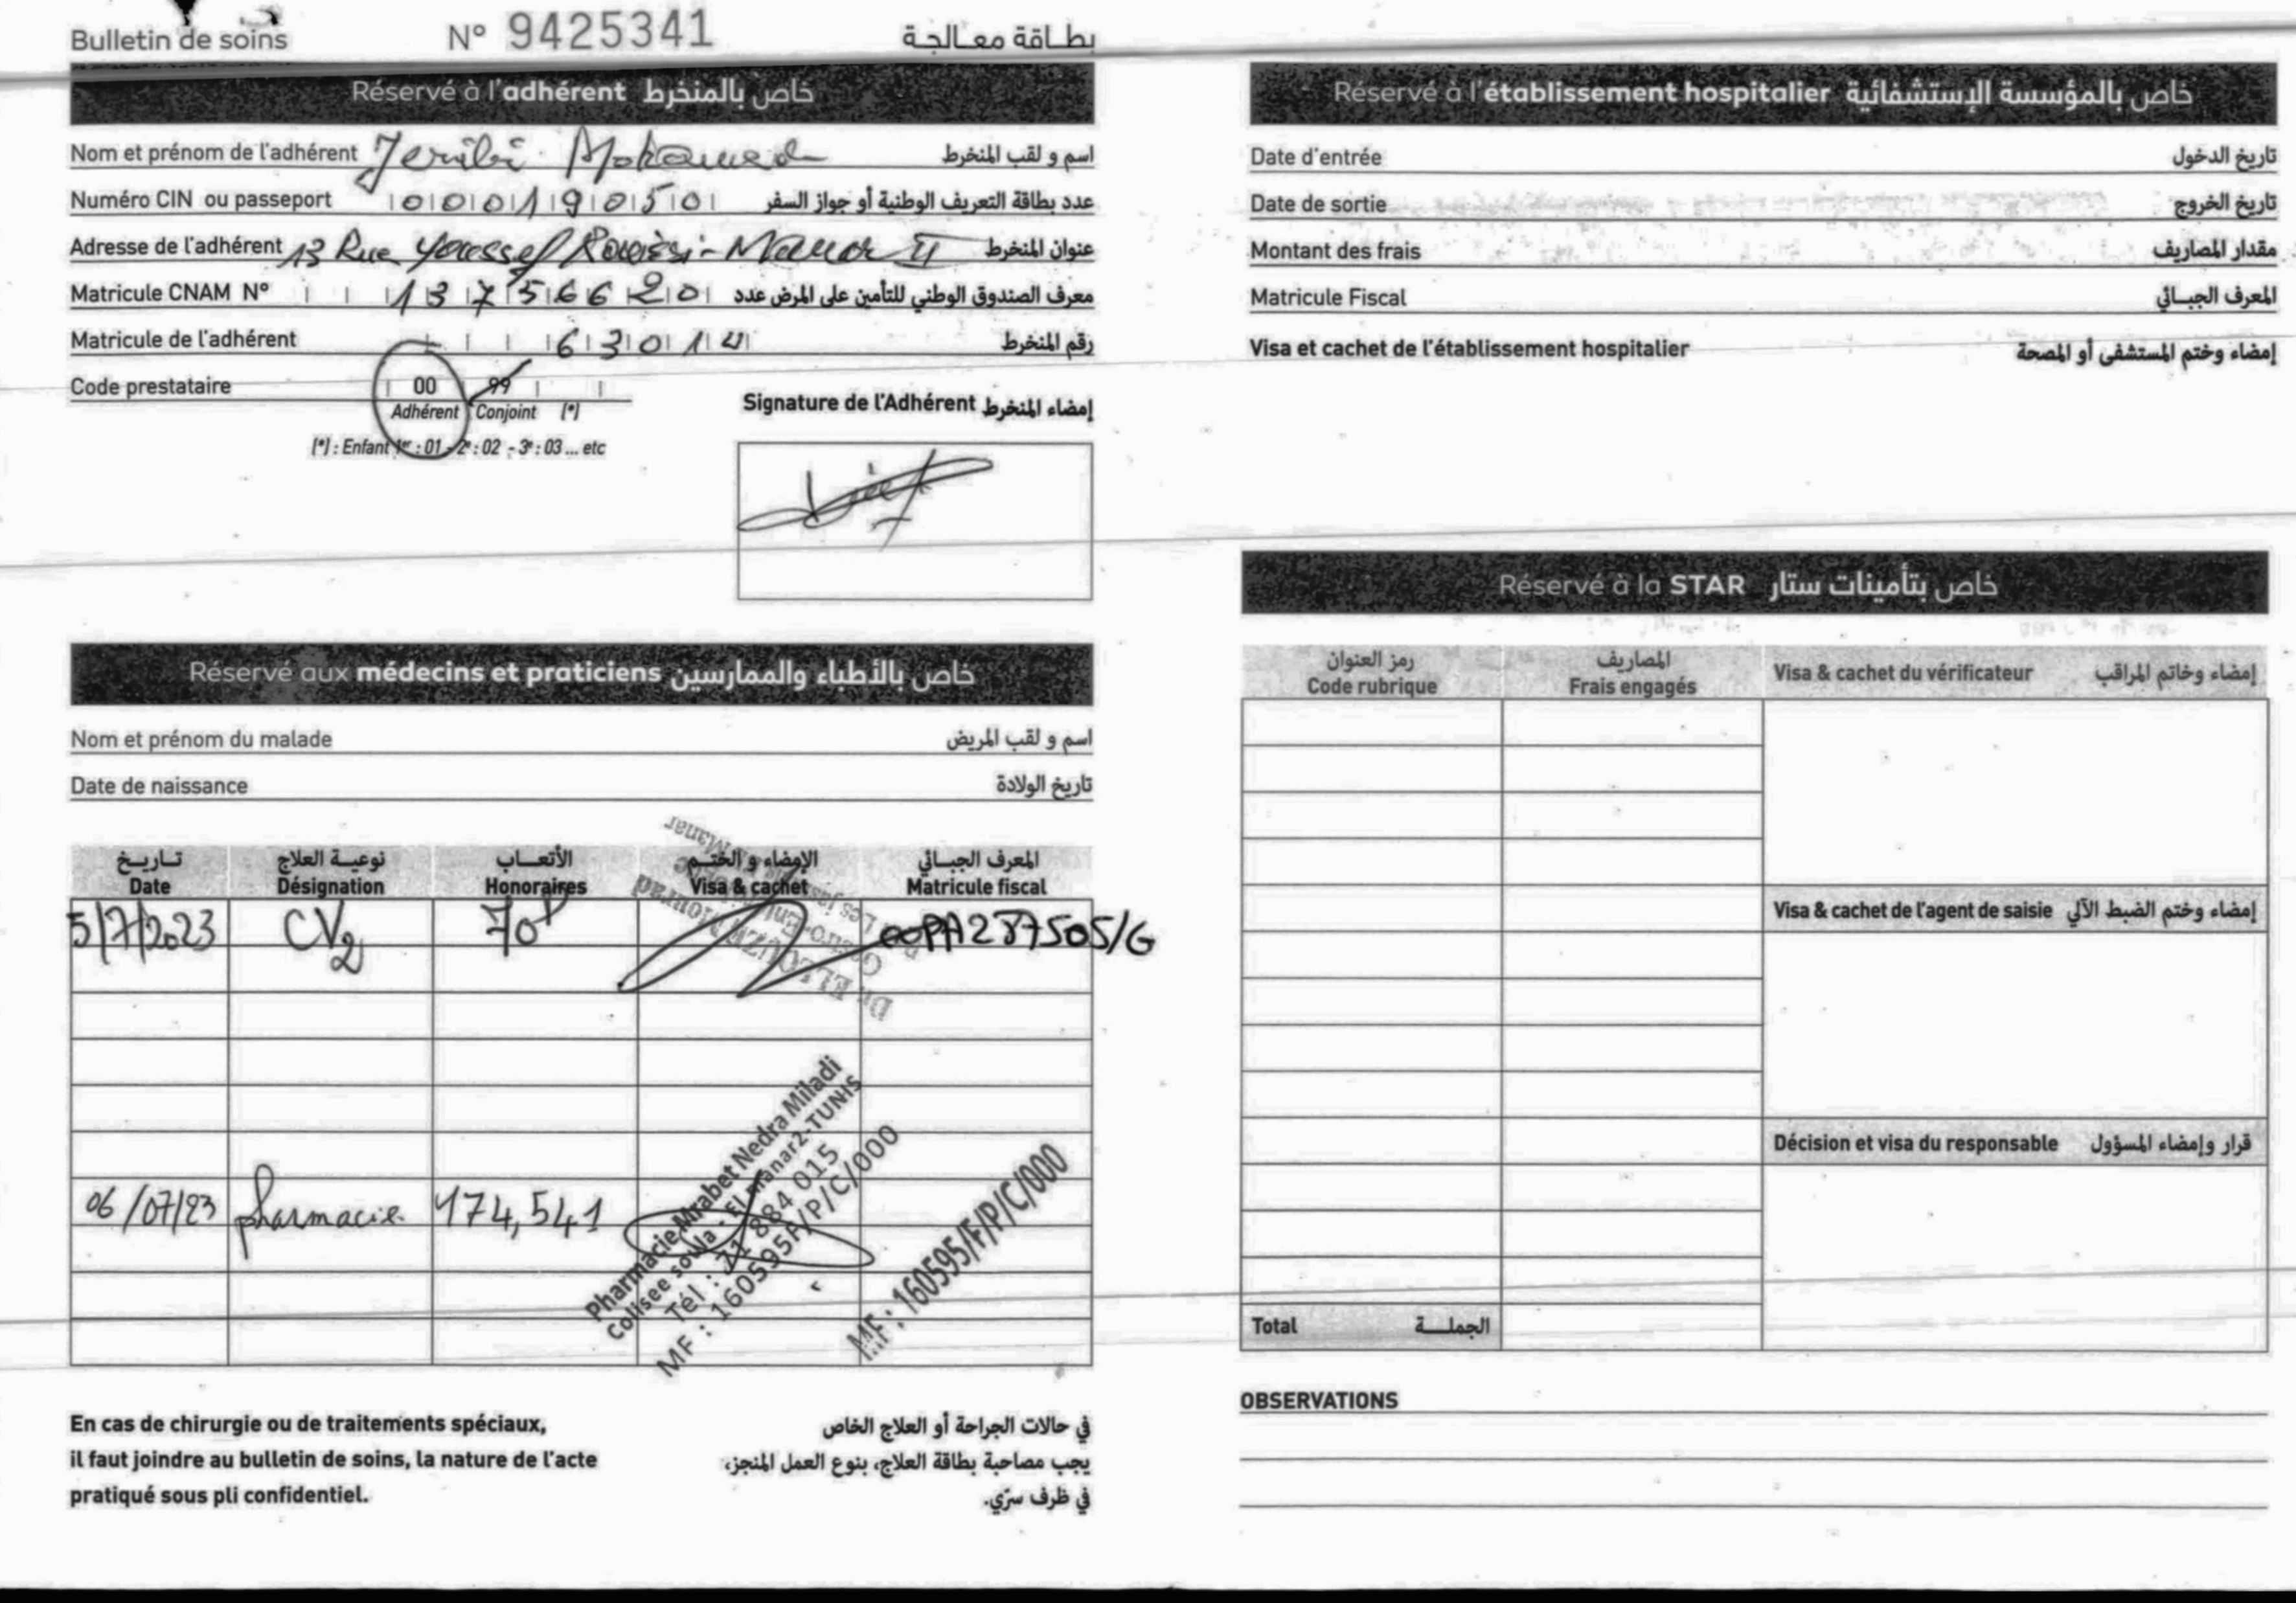 Bulletin de soins N° 9425341 بطاقة معالجة
Réservé à l'adhérent خاص بالمنخرط
Nom et prénom de l'adhérent Jeribi Mohamed اسم و لقب المنخرط
Numéro CIN ou passeport 00019050 عدد بطاقة التعريف الوطنية أو جواز السفر
Adresse de l'adhérent 13 Rue Youssef Rouissi - Manar II عنوان المنخرط
Matricule CNAM N° 13756620 معرف الصندوق الوطني للتأمين على المرض عدد
Matricule de l'adhérent 63014 رقم المنخرط
Code prestataire 00 99
Adhérent Conjoint (*)
(*) : Enfant 1er : 01 - 2e : 02 - 3e : 03 ... etc
Signature de l'Adhérent إمضاء المنخرط
Réservé aux médecins et praticiens خاص بالأطباء والممارسين
Nom et prénom du malade اسم و لقب المريض
Date de naissance تاريخ الولادة
تاريخ نوعية العلاج الأتعاب الإمضاء و الختم المعرف الجبائي
Date Désignation Honoraires Visa & cachet Matricule fiscal
5/7/2023 CV2 70
06/07/23 pharmacie 174,541
Pharmacie Mrabet Nedra Miladi
Colisee soula - El manar2-TUNIS
Tél : 71 884 015
MF : 160595F/P/C/000
MF : 160595/F/P/C/000
En cas de chirurgie ou de traitements spéciaux,
il faut joindre au bulletin de soins, la nature de l'acte
pratiqué sous pli confidentiel.
في حالات الجراحة أو العلاج الخاص
يجب مصاحبة بطاقة العلاج، بنوع العمل المنجز،
في ظرف سرّي.
Réservé à l'établissement hospitalier خاص بالمؤسسة الإستشفائية
Date d'entrée تاريخ الدخول
Date de sortie تاريخ الخروج
Montant des frais مقدار المصاريف
Matricule Fiscal المعرف الجبائي
Visa et cachet de l'établissement hospitalier إمضاء وختم المستشفى أو المصحة
Réservé à la STAR خاص بتأمينات ستار
رمز العنوان المصاريف
Code rubrique Frais engagés Visa & cachet du vérificateur إمضاء وخاتم المراقب
Visa & cachet de l'agent de saisie إمضاء وختم الضبط الآلي
Décision et visa du responsable قرار وإمضاء المسؤول
Total الجملة
OBSERVATIONS